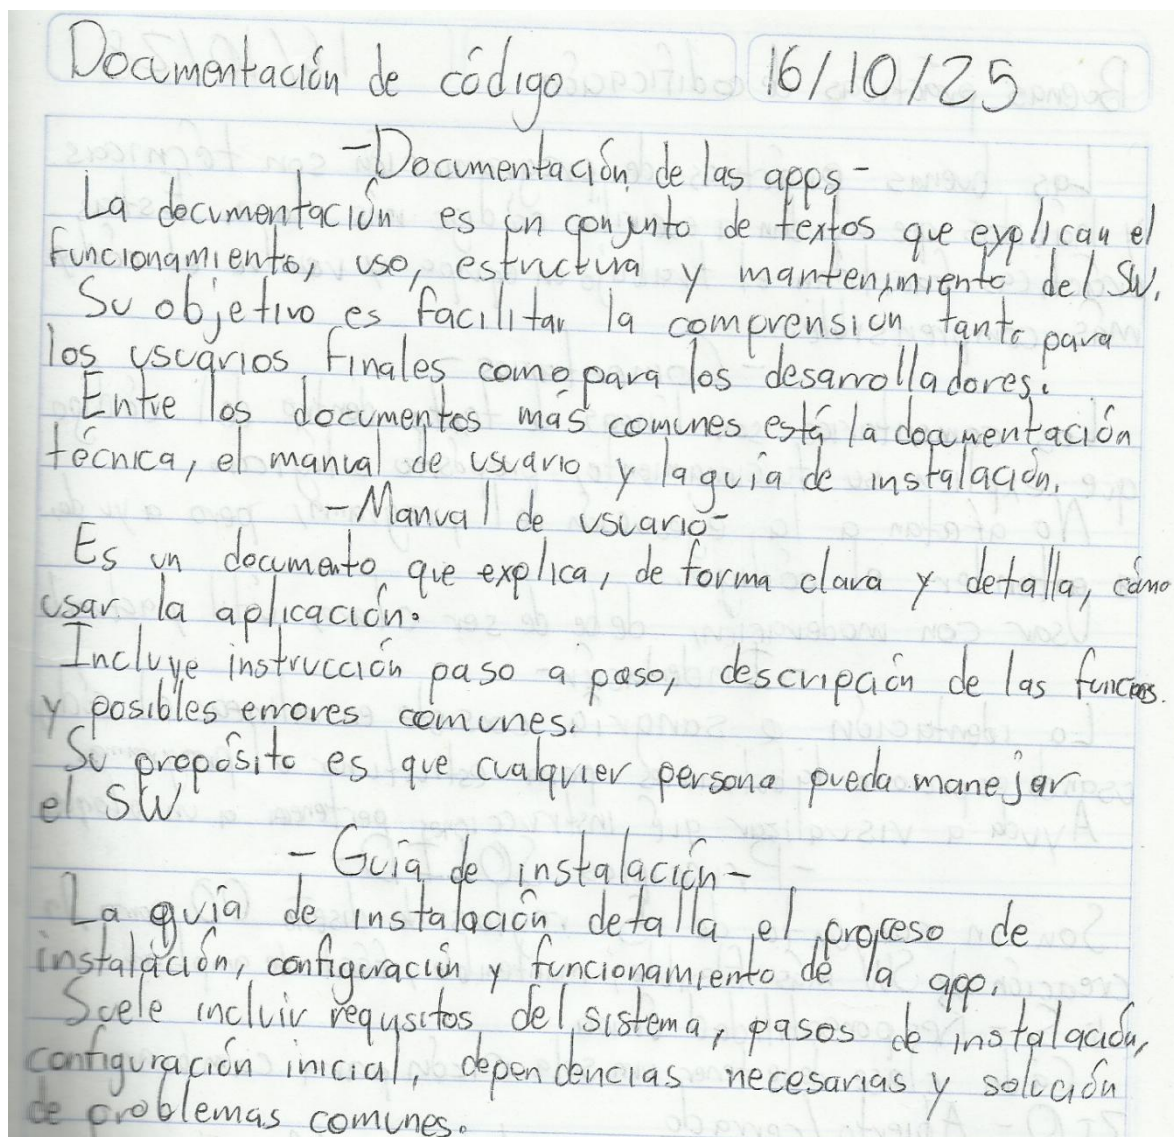 Documentación de código 16/10/25
-Documentación de las apps-
La documentación es un conjunto de textos que explican el
funcionamiento, uso, estructura y mantenimiento del SW.
Su objetivo es facilitar la comprensión tanto para
los usuarios finales como para los desarrolladores.
Entre los documentos más comunes está la documentación
técnica, el manual de usuario y la guía de instalación.
-Manual de usuario-
Es un documento que explica, de forma clara y detalla, cómo
usar la aplicación.
Incluye instrucción paso a paso, descripción de las funciones
y posibles errores comunes.
Su propósito es que cualquier persona pueda manejar
el SW
-Guía de instalación-
La guía de instalación detalla el proceso de
instalación, configuración y funcionamiento de la app.
Suele incluir requsitos del sistema, pasos de instalación,
configuración inicial, dependencias necesarias y solución
de problemas comunes.